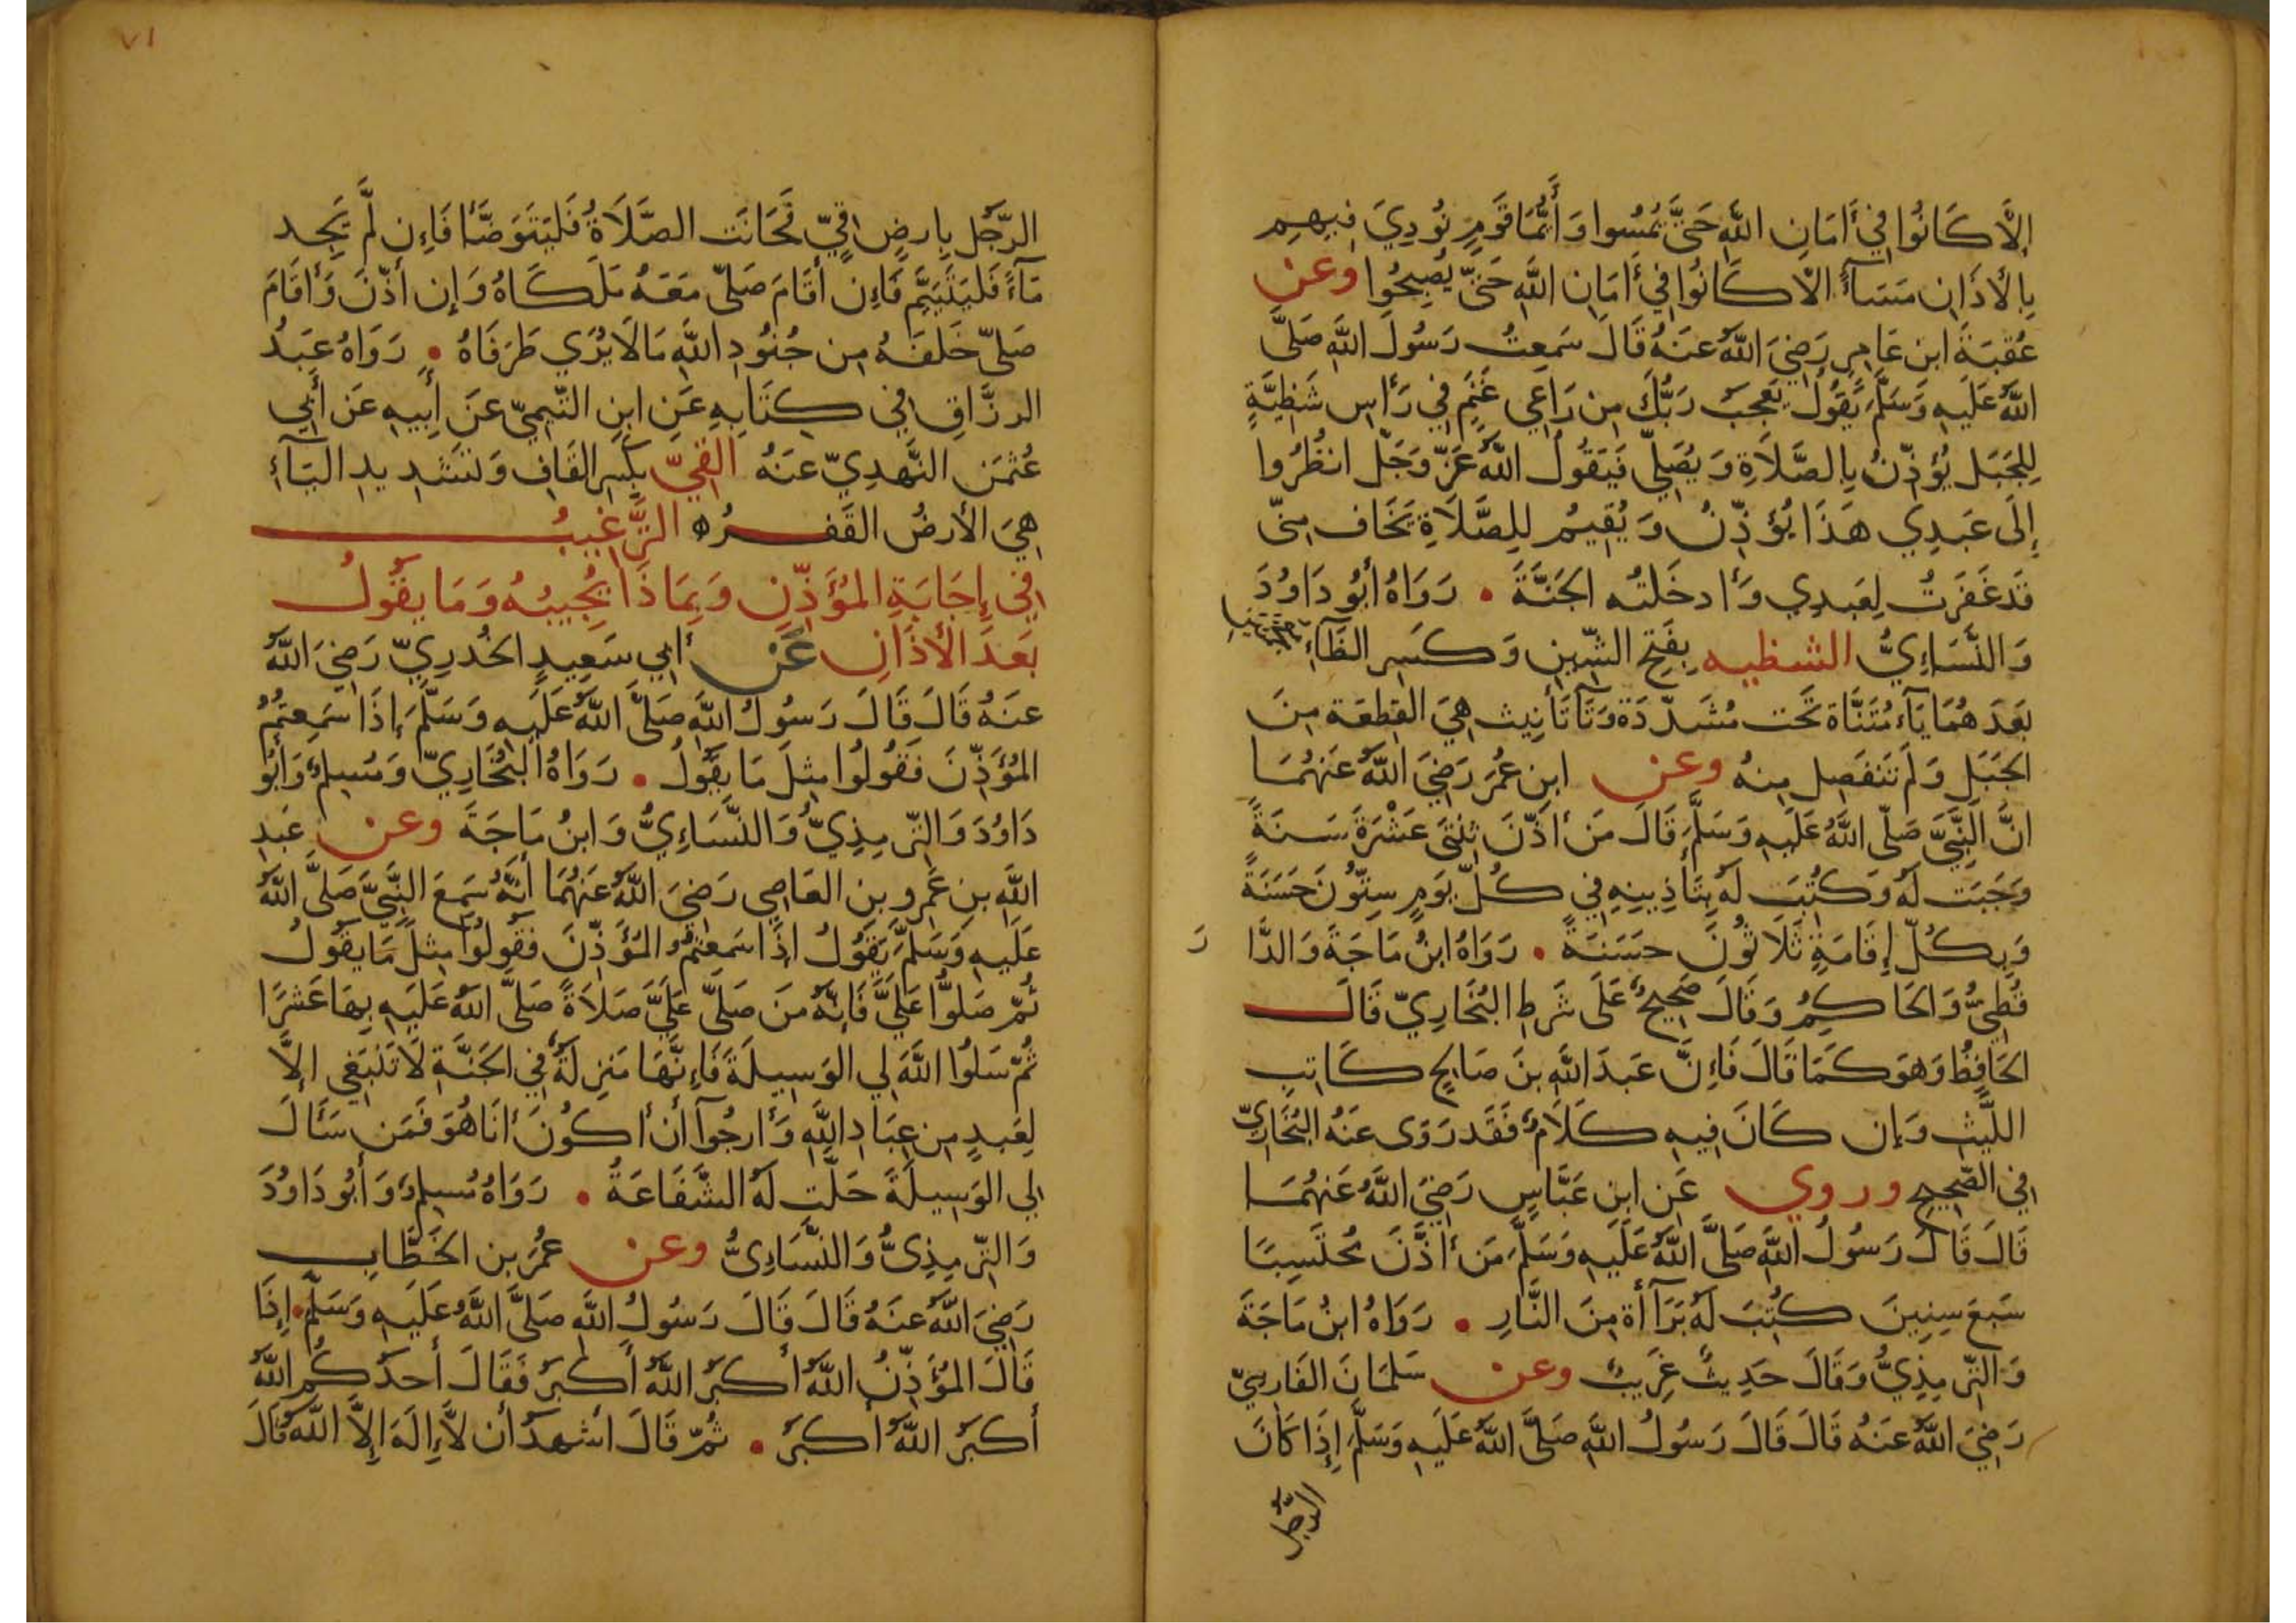 إِلَّا كَانُوا فِي أَمَانِ اللَّهِ حَتَّى يُمْسُوا وَأَيُّمَا قَوْمٍ نُودِيَ فِيهِم
بِالأَذَانِ مَسَآءً الَّا كَانُوا فِي أَمَانِ اللَّهِ حَتَّى يُصْبِحُوا وعن
عُقْبَةَ ابن عَامِرٍ رَضِيَ اللَّهُ عَنْهُ قَالَ سَمِعْتُ رَسُولَ اللَّهِ صَلَّى
اللَّهُ عَلَيهِ وَسَلَّمَ يَقُولُ يَعْجَبُ رَبُّكَ مِن رَاعِي غَنَمٍ فِي رَأسِ شَظِيَّةٍ
لِلجَبَلِ يُؤَذِّنُ بِالصَّلَاةِ وَيُصَلِّي فَيَقُولُ اللَّهُ عَزَّ وَجَلَّ انظُرُوا
إِلَى عَبدِي هَذَا يُؤَذِّنُ وَيُقِيمُ لِلصَّلَاةِ يَخَاف مِنِّي
قَد غَفَرتُ لِعَبدِي وَأَدخَلتُه الجَنَّةَ • رَوَاهُ أَبُو دَاوُدَ
وَالنَّسَاءِيُّ الشظيه بِفَتحِ الشِّينِ وَكَسرِ الظَّاءِ المعجمتين
بَعدَهُمَا يَآء مُثَنَّاة تَحت مُشَدَّدَة وَتَآ تَأنِيث هِيَ القِطعَة مِنَ
الجَبَلِ وَلَم تَنفَصِل مِنهُ وعن ابن عُمَرَ رَضِيَ اللَّهُ عَنهُمَا
انَّ النَّبِيَّ صَلَّى اللَّهُ عَلَيهِ وَسَلَّمَ قَالَ مَن أَذَّنَ ثِنتَى عَشْرَةَ سَنَةً
وَجَبَت لَهُ وَكُتِبَ لَهُ بِتَأذِينِهِ فِي كُلِّ يَومٍ سِتُّونَ حَسَنَةً
وَبِكُلِّ إِقَامَةٍ ثَلَاثُونَ حَسَنَةً • رَوَاهُ ابنُ مَاجَةَ وَالدَّا رَ
قُطنِيُّ وَالحَاكِمُ وَقَالَ صَحِيحٌ عَلَى شَرطِ البُخَارِيِّ قَالَ
الحَافِظُ وَهوَ كَمَا قَالَ فَإِنَّ عَبدَ اللَّهِ بنَ صَالِحٍ كَاتِبِ
اللَّيثِ وَإِن كَانَ فِيهِ كَلَامٌ فَقَد رَوَى عَنهُ البُخَارِيّ
فِي الصَّحِيحِ وروي عَنِ ابنِ عَبَّاسٍ رَضِيَ اللَّهُ عَنهُمَا
قَالَ قَالَ رَسُولُ اللَّهِ صَلَّى اللَّهُ عَلَيهِ وَسَلَّمَ مَن أَذَّنَ مُحتَسِبًا
سَبعَ سِنِينَ كُتِبَ لَهُ بَرَآأَة مِنَ النَّارِ • رَوَاهُ ابنُ مَاجَةَ
وَالتِّرمِذِيُّ وَقَالَ حَدِيثٌ غَرِيبٌ وعن سَلمَانَ الفَارِسِيّ
رَضِيَ اللَّهُ عَنهُ قَالَ قَالَ رَسُولُ اللَّهِ صَلَّى اللَّهُ عَلَيهِ وَسَلَّمَ إِذَا كَانَ
الرَّجُل
٧١
الرَّجُل بِارضٍ قِيٍّ فَحَانَت الصَّلَاةُ فَليَتَوَضَّأ فَإِن لَّم يَجِد
مَآءً فَليَتَيَمَّم فَإِن أَقَامَ صَلَّى مَعَهُ مَلَكَاهُ وَإِن أَذَّنَ وَأَقَامَ
صَلَّى خَلفَهُ مِن جُنُودِ اللَّهِ مَالَا يُرَى طَرَفَاهُ • رَوَاهُ عَبدُ
الرزَّاقِ فِي كِتَابِهِ عَنِ ابنِ التَّيمِيّ عَن أَبِيهِ عَن أَبِي
عُثمَن النَّهدِيّ عَنهُ القيّ بِكَسرِ القَافِ وَتَشدِيدِ اليَآءِ
هِيَ الأَرضُ القَفرُ ه التَّرغِيبُ
فِي إِجَابَةِ المُؤَذِّنِ وَبِمَاذَا يُجِيبُهُ وَمَا يَقُولُ
بَعدَ الأَذَانِ عَن أَبِي سَعِيدٍ الخُدرِيِّ رَضِيَ اللَّهُ
عَنهُ قَالَ قَالَ رَسُولُ اللَّهِ صَلَّى اللَّهُ عَلَيهِ وَسَلَّمَ إِذَا سَمِعتُمُ
المُؤَذِّنَ فَقُولُوا مِثلَ مَا يَقُولُ • رَوَاهُ البُخَارِيّ وَمُسلِمٌ وَأَبُو
دَاوُدَ وَالتِّرمِذِيُّ وَالنَّسَاءِيُّ وَابنُ مَاجَةَ وعن عَبدِ
اللَّهِ بنِ عَمرِو بنِ العَاصِي رَضِيَ اللَّهُ عَنهُمَا أَنَّهُ سَمِعَ النَّبِيَّ صَلَّى اللَّهُ
عَلَيهِ وَسَلَّمَ يَقُولُ إِذَا سَمِعتُمُ المُؤَذِّنَ فَقُولُوا مِثلَ مَا يَقُولُ
ثُمَّ صَلُّوا عَلَيَّ فَإِنَّهُ مَن صَلَّى عَلَيَّ صَلَاةً صَلَّى اللَّهُ عَلَيهِ بِهَا عَشرًا
ثُمَّ سَلُوا اللَّهَ لِي الوَسِيلَةَ فَإِنَّهَا مَنزِلَةٌ فِي الجَنَّةِ لَا تَنبَغِي إِلَّا
لِعَبدٍ مِن عِبَادِ اللَّهِ وَأَرجُوآ أَن أَكُونَ أَنَا هُوَ فَمَن سَأَلَ
لِي الوَسِيلَةَ حَلَّت لَهُ الشَّفَاعَةُ • رَوَاهُ مُسلِمٌ وَأَبُو دَاوُدَ
وَالتِّرمِذِيُّ وَالنَّسَاءِيُّ وعن عُمَرَ بن الخَطَّابِ
رَضِيَ اللَّهُ عَنهُ قَالَ قَالَ رَسُولُ اللَّهِ صَلَّى اللَّهُ عَلَيهِ وَسَلَّمَ • إِذَا
قَالَ المُؤَذِّنُ اللَّهُ أَكبَرُ اللَّهُ أَكبَرُ فَقَالَ أَحَدُكُم اللَّهُ
أَكبَرُ اللَّهُ أَكبَرُ • ثُمَّ قَالَ أَشهَدُ أَن لَّا إِلَهَ إِلَّا اللَّهُ قَالَ